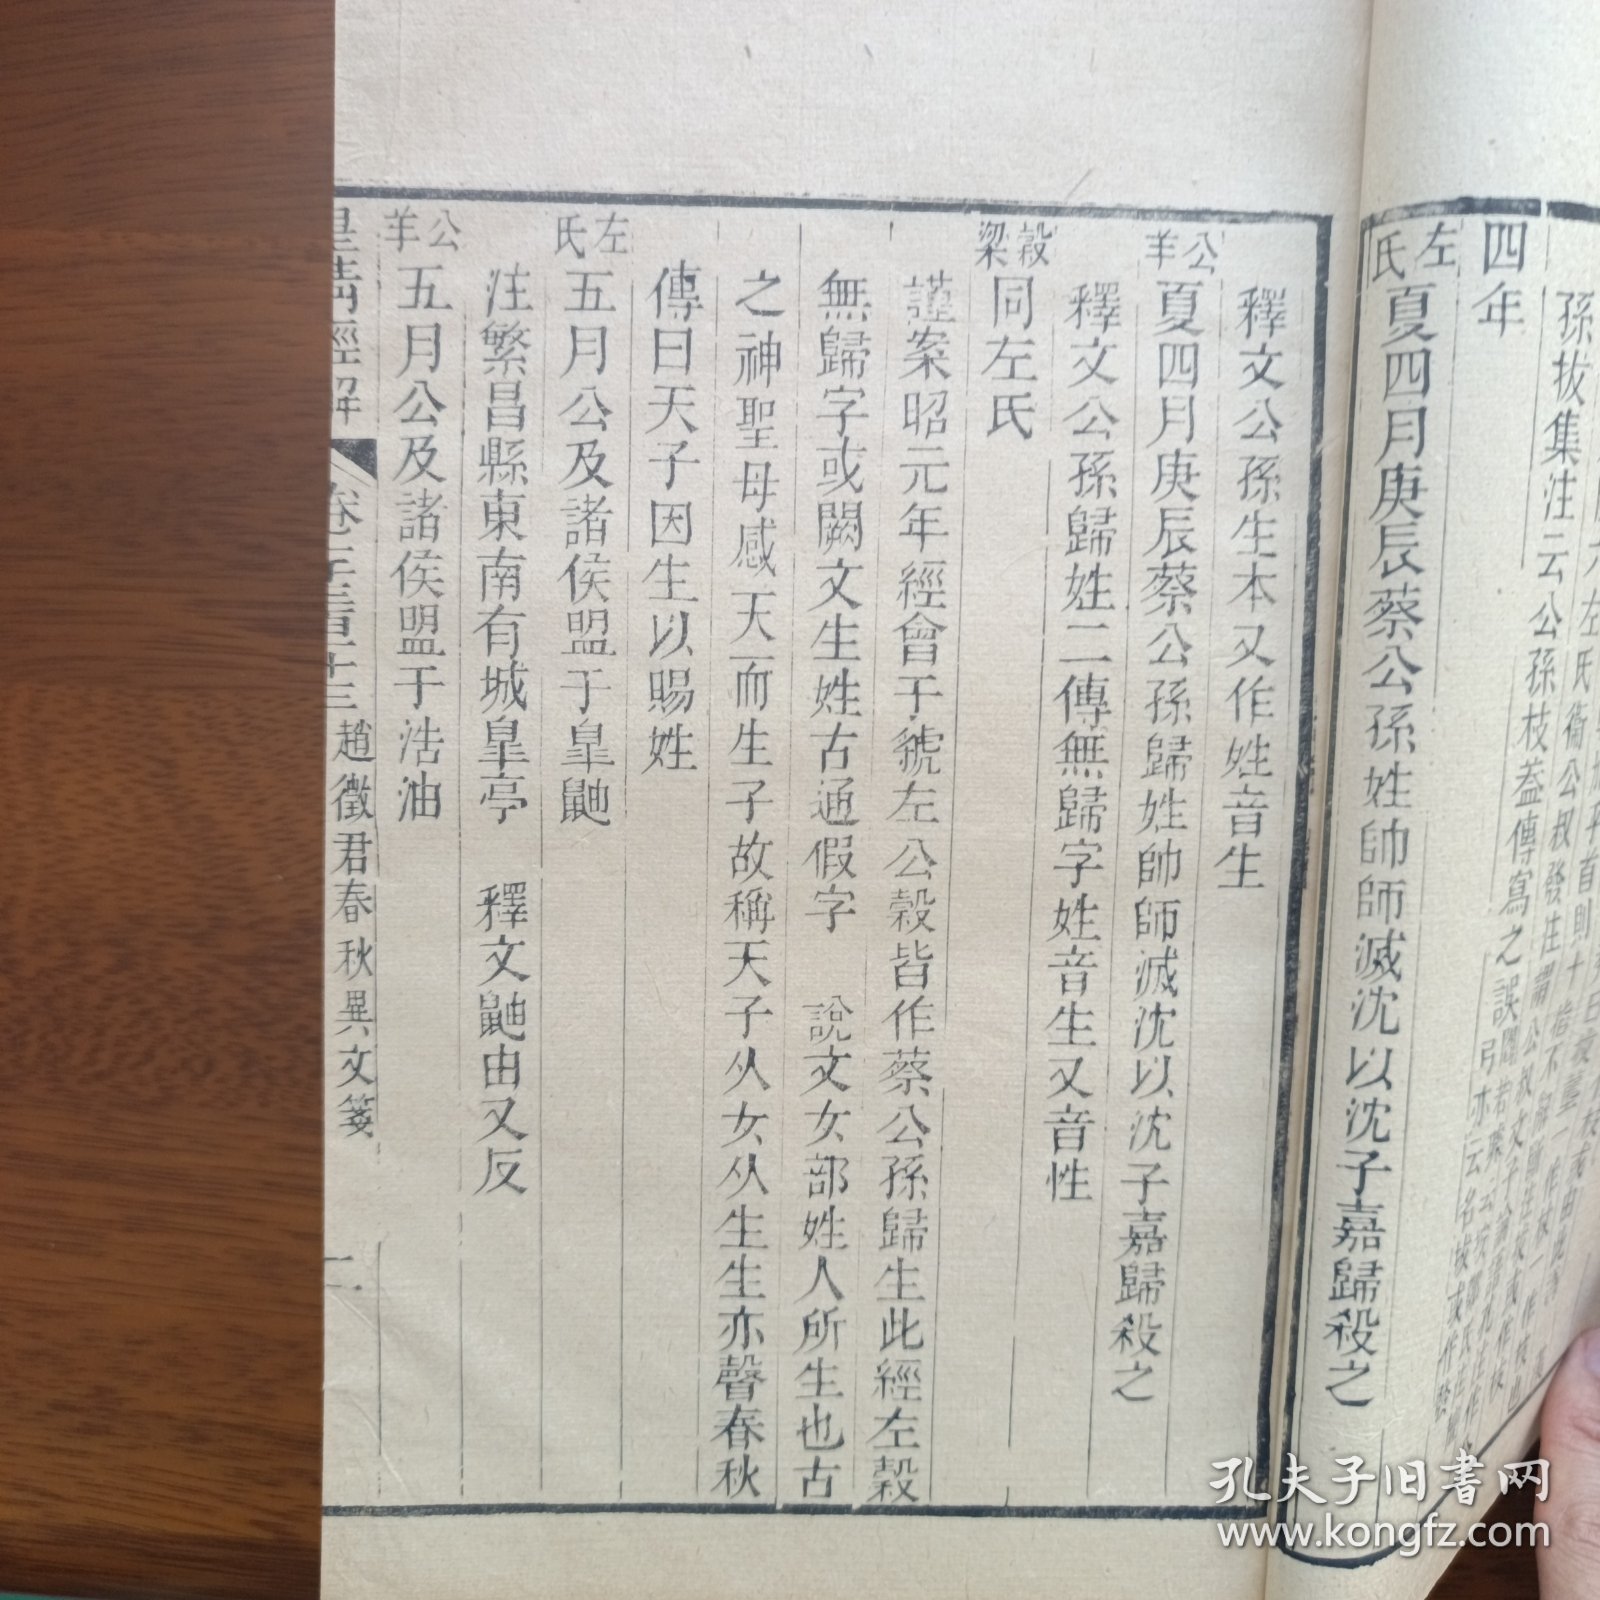 孫拔集注云公孫枝葢傳寫之誤
四年
左氏夏四月庚辰蔡公孫姓帥師滅沈以沈子嘉歸殺之
釋文公孫生本又作姓音生
公羊夏四月庚辰蔡公孫歸姓帥師滅沈以沈子嘉歸殺之
釋文公孫歸姓二傳無歸字姓音生又音性
穀梁同左氏
謹案昭元年經會于虢左公穀皆作蔡公孫歸生此經左穀
無歸字或闕文生姓古通假字 說文女部姓人所生也古
之神聖母感天而生子故稱天子从女从生生亦聲春秋
傳曰天子因生以賜姓
左氏五月公及諸侯盟于皐鼬
注繁昌縣東南有城皐亭 釋文鼬由又反
公羊五月公及諸侯盟于浩油
皇清經解 卷一千三百三十三 趙徵君春秋異文箋 二
孔夫子旧書网
www.kongfz.com